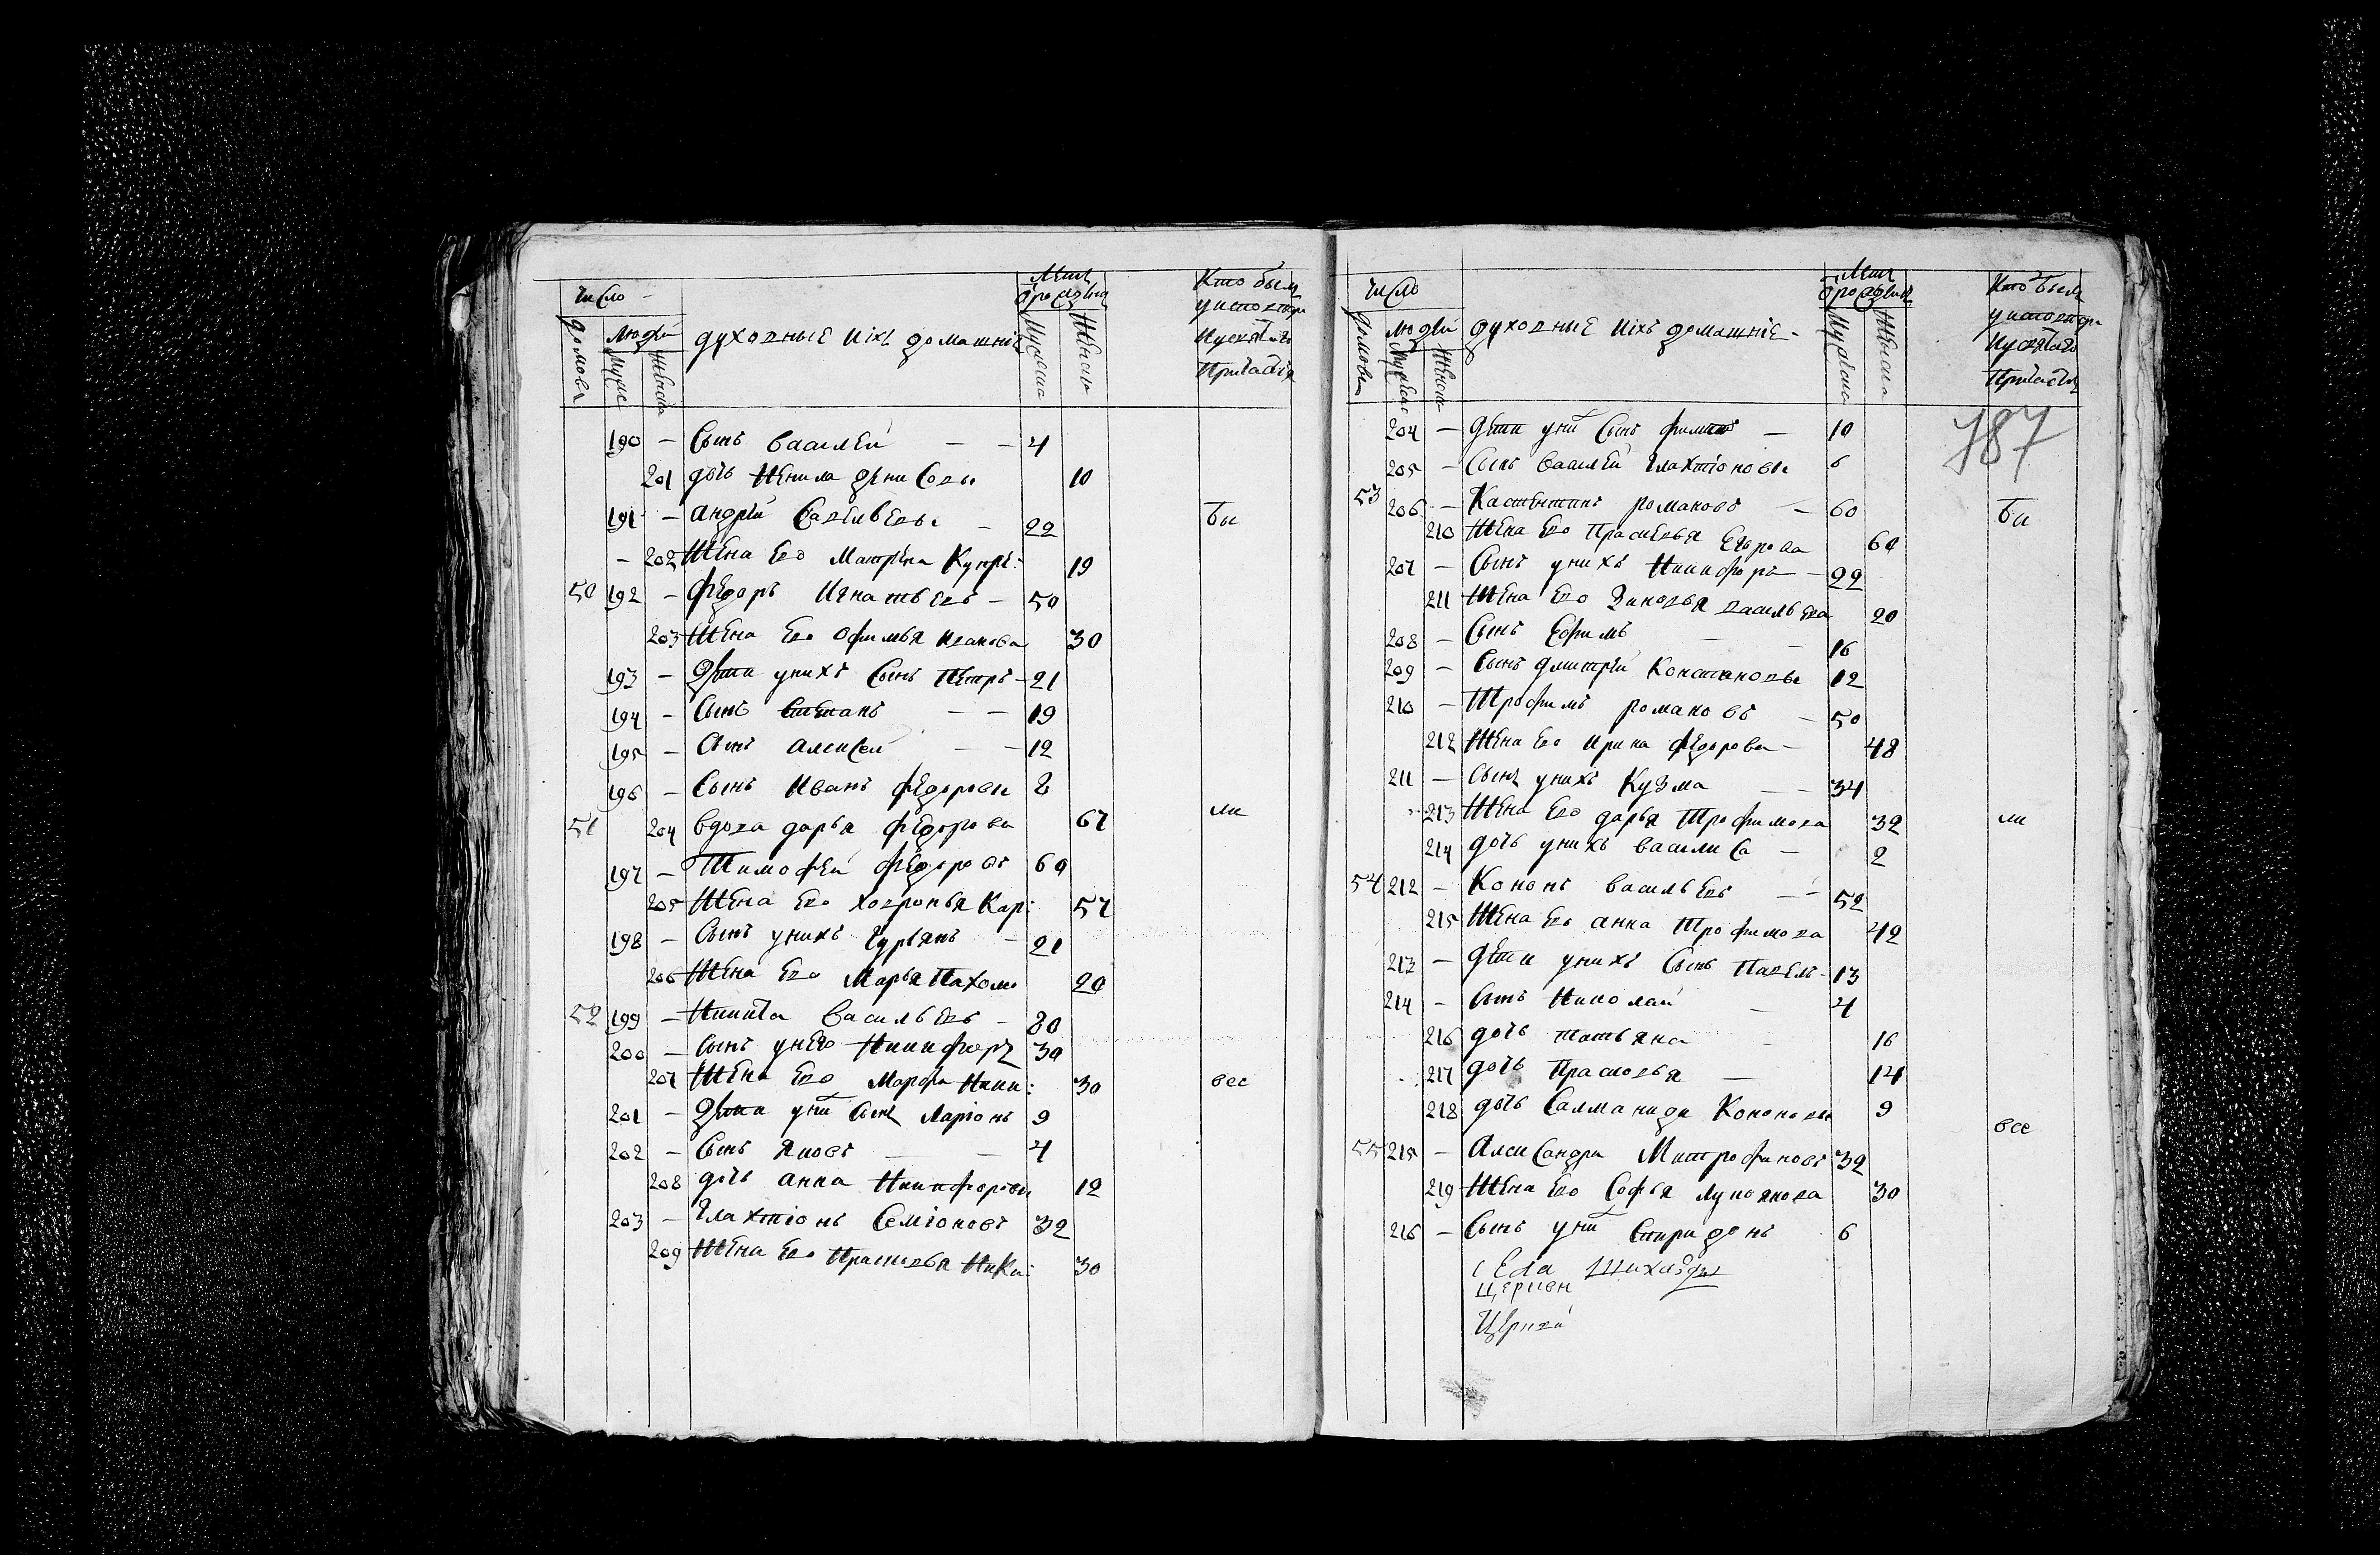 число
домовъ
людей
мужеска
женска
духовные и ихъ домашніе
Лета
от рождения
мужеска
женска
Кто былъ
у исповеди
и у святаго
причастія
190 — Сынъ василей — — 4
201 дочь Ненила денисовы 10
191 — андрей Савельевъ — 22 Бы
— 202 Жена Его Матрена Купре: 19
50 192 — Федоръ Игнатьевъ — 50
203 Жена Его Офимья иванова 30
193 — Дети у нихъ Сынъ Петръ — 21
194 — Сынъ Степанъ — — 19
195 — Сынъ алексей — — 12
196 — Сынъ Иванъ Федоровы 8
51 204 вдова дарья федорова 67 ли
197 — Тимофей Федоровъ 60
205 Жена Его ховронья Кар: 57
198 — Сынъ у нихъ Гурьянъ — 21
206 Жена Его Марья Пахомо 20
52 199 — Никита васильевъ — 80
200 — Сынъ у него Никифоръ 30
207 Жена Его Марфа Ники: 30 все
201 — Дети у них Сынъ Ларіонъ 9
202 — Сынъ Яковъ — — 4
208 дочь анна Никифоровы 12
203 — Галахтіонъ Семіоновъ 32
209 Жена Его Прасковья Ники: 30
число
домовъ
людей
мужеска
женска
духовные и ихъ домашніе —
Лета
от рождения
мужеска
женска
Кто былъ
у исповеди
и у святаго
причастія
787
204 — Дети у них Сынъ филипъ — 10
205 — Сынъ василей Галахтіоновы 6
53 206 — Костентинъ романовъ — 60 Бы
210 Жена Его Прасковья Егорова 60
207 — Сынъ у нихъ Никифоръ — 22
211 Жена Его Зиновья васильева 20
208 — Сынъ Ефимъ — — 16
209 — Сынъ дмитрей Констановы 12
210 — Трофимъ романовъ — 50
212 Жена Его ирина федорова — 48
211 — Сынъ у нихъ Кузма — — 34
213 Жена Его дарья Трофимова 32 ли
214 дочь у нихъ василиса — 2
54 212 — Кононъ васильевъ — — 52
215 Жена Его анна Трофимова 42
213 — Дети у нихъ Сынъ Павелъ — 13
214 — Сынъ Николай — 4
216 дочь татьяна — 16
217 дочь Прасковья — 14
218 дочь Саламанида Кононовы 9
все
55 215 — Александръ Митрофановъ 32
219 Жена Его Софья Лукоянова 30
216 — Сынъ у них Спиридонъ 6
Села
Церкви
Церкви